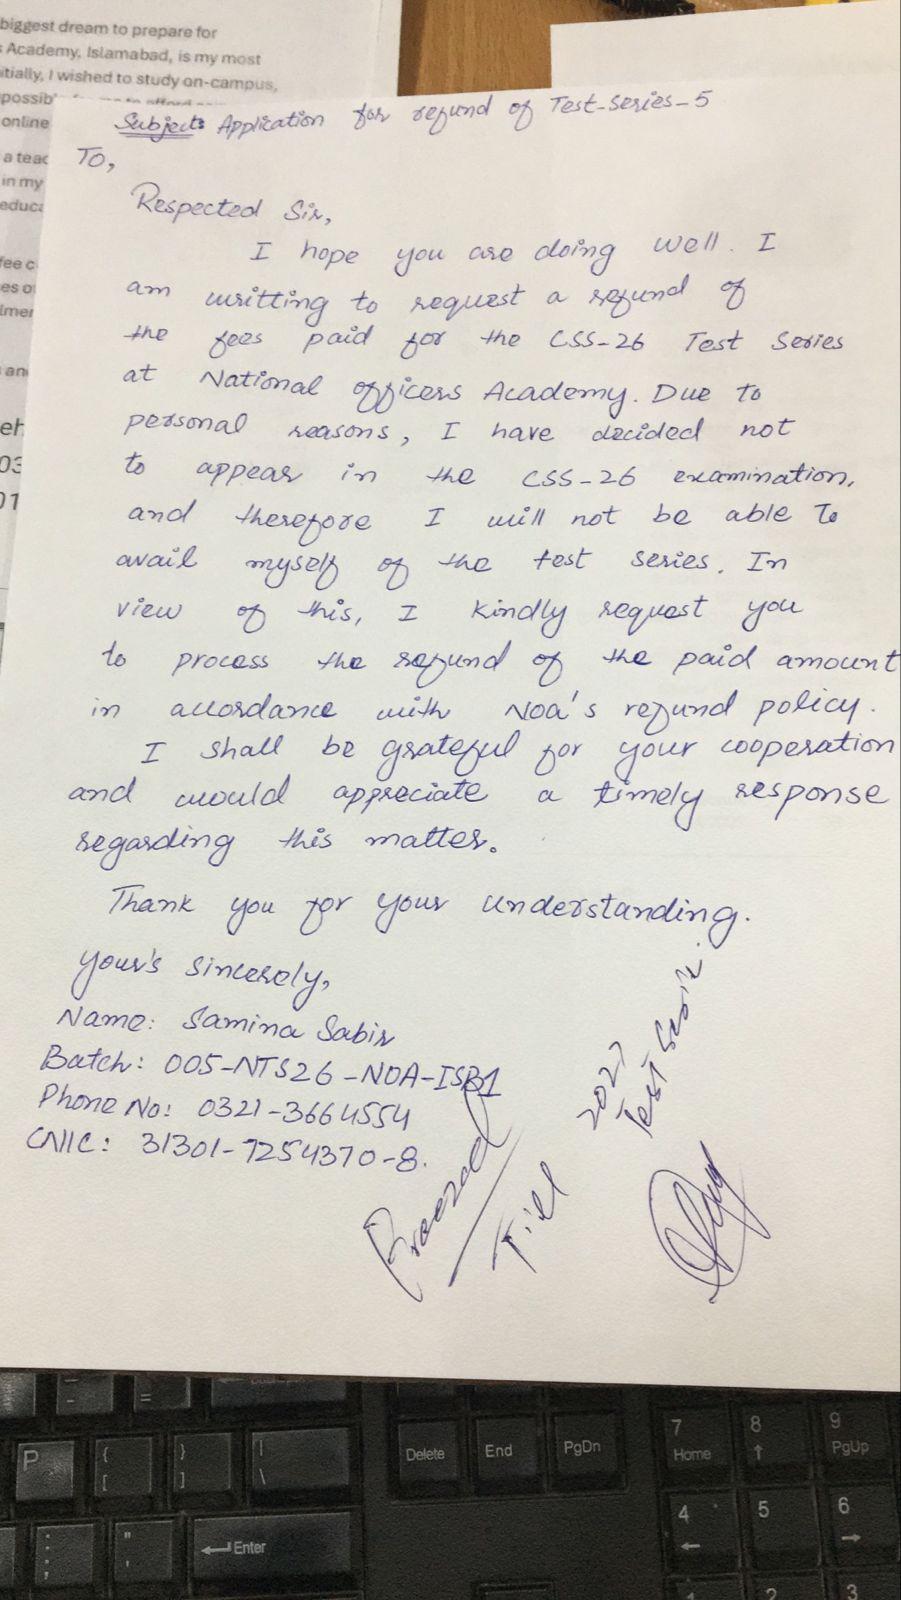 biggest dream to prepare for
Academy, Islamabad, is my most
itially, I wished to study on-campus,
possib
online
a teac
in my
educa
fee c
es o
lmer
an
eh
03
01
Subject: Application for refund of Test-Series-5
To,
Respected Sir,
I hope you are doing well. I
am writting to request a refund of
the fees paid for the CSS-26 Test Series
at National officers Academy. Due to
personal reasons, I have decided not
to appear in the CSS-26 examination,
and therefore I will not be able To
avail myself of the test series. In
view of this, I kindly request you
to process the refund of the paid amount
in accordance with NOA's refund policy.
I shall be grateful for your cooperation
and would appreciate a timely response
regarding this matter.
Thank you for your understanding.
your's sincerely,
Name: Samina Sabir
Batch: 005-NTS26-NOA-ISB1
Phone No: 0321-3664554
CNIC: 31301-7254370-8.
Till 2027
Test Series
P
{
[
}
]
|
\
Delete
End
PgDn
7
Home
8
↑
9
PgUp
4
←
5
6
→
:
;
"
'
Enter
1
2
3